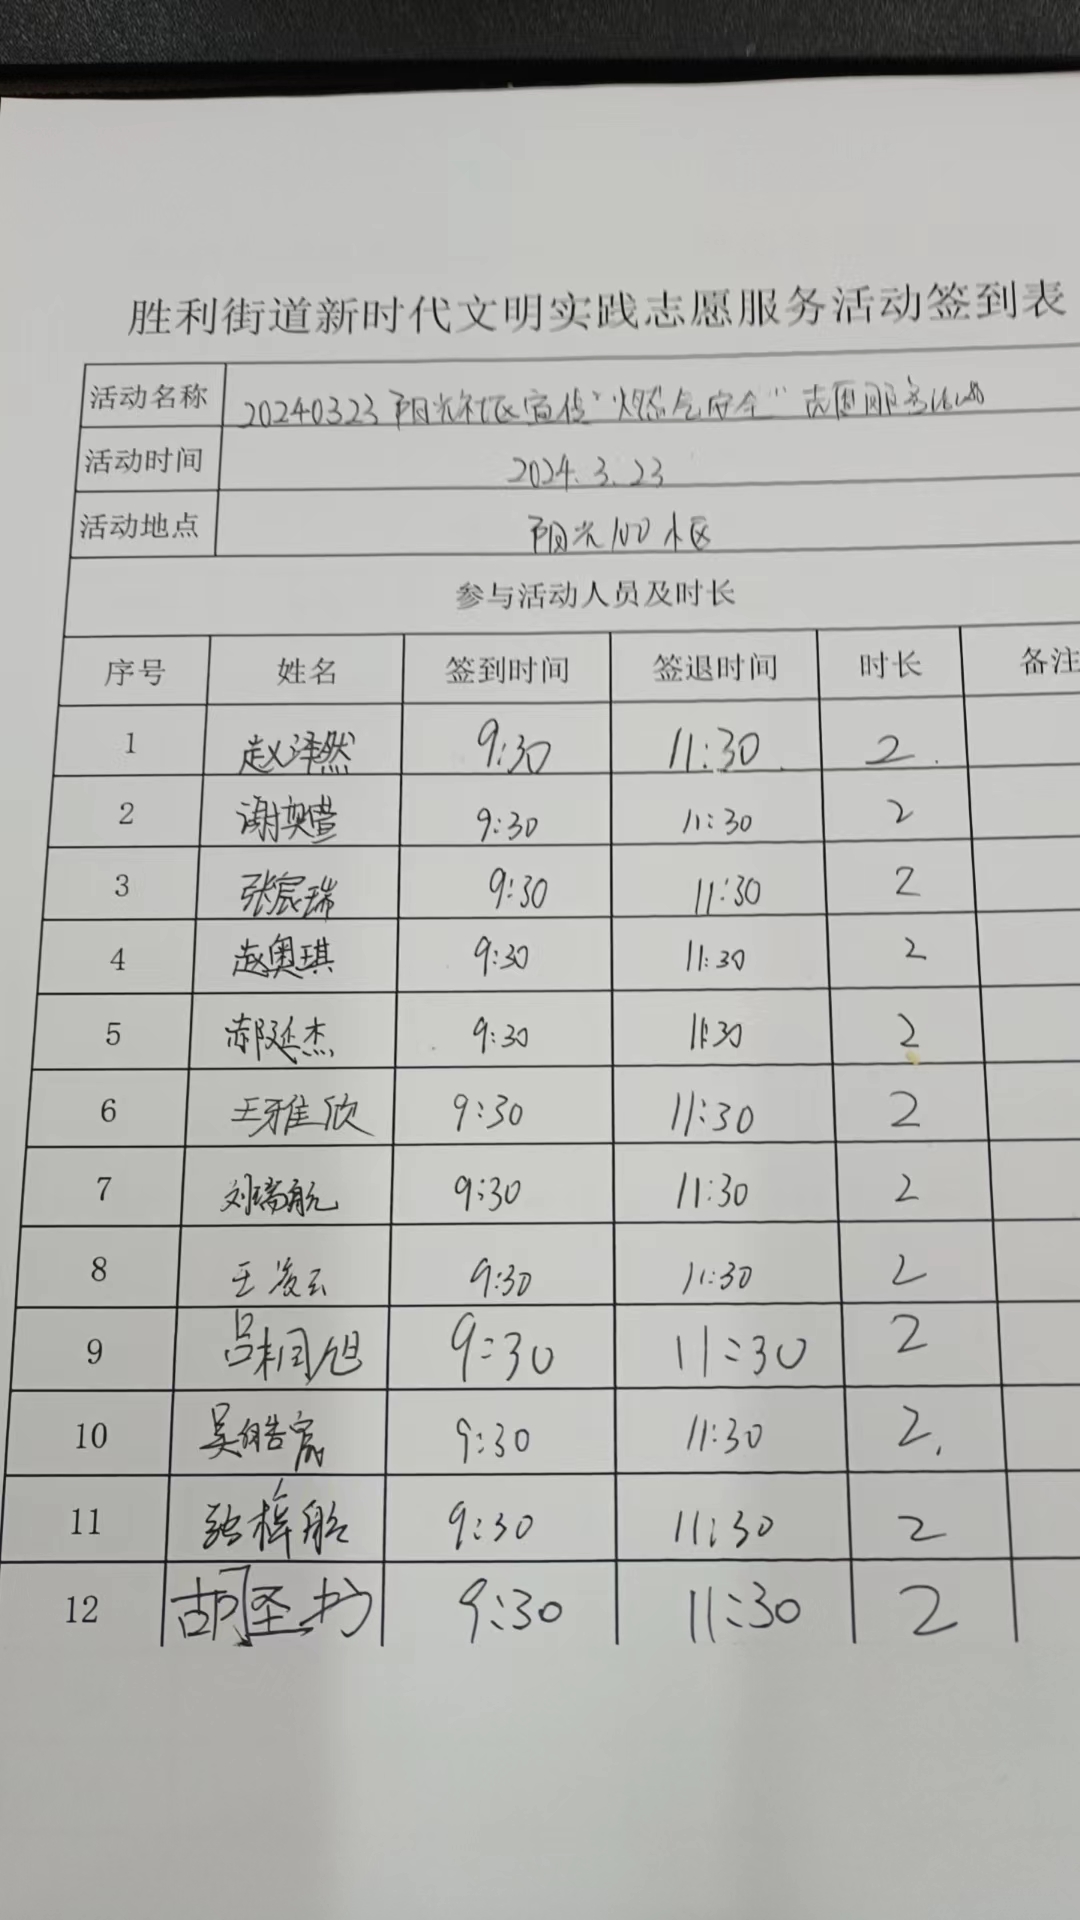 胜利街道新时代文明实践志愿服务活动签到表
活动名称 20240323阳光社区宣传“燃气安全”志愿服务活动
活动时间 2024.3.23
活动地点 阳光100小区
参与活动人员及时长
序号 姓名 签到时间 签退时间 时长 备注
1 赵泽然 9:30 11:30 2
2 谢奕萱 9:30 11:30 2
3 张宸瑞 9:30 11:30 2
4 赵奥琪 9:30 11:30 2
5 郝延杰 9:30 11:30 2
6 王雅欣 9:30 11:30 2
7 刘瑞航 9:30 11:30 2
8 王凌云 9:30 11:30 2
9 吕桐旭 9:30 11:30 2
10 吴皓宸 9:30 11:30 2
11 张梓船 9:30 11:30 2
12 胡圣 9:30 11:30 2